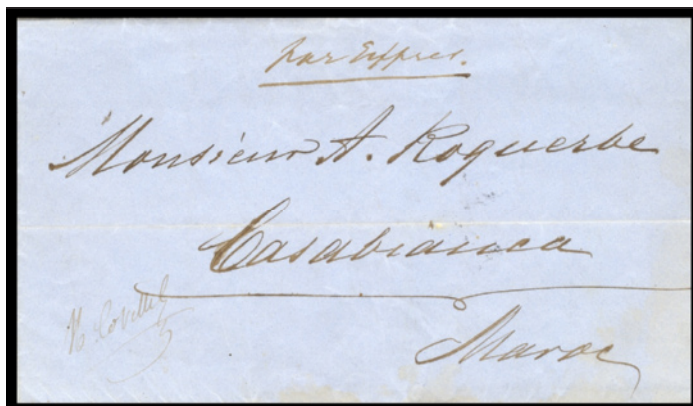 par Exprès.
Monsieur A. Roquerbe
Casabianca
Maroc